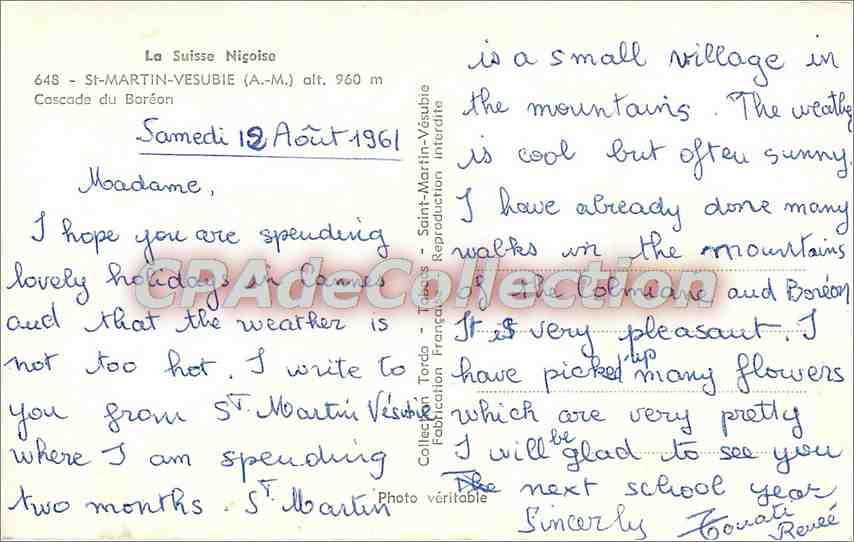 La Suisse Niçoise
648 - St-MARTIN-VESUBIE (A.-M.) alt. 960 m
Cascade du Boréon
Samedi 12 Août 1961
Madame,
I hope you are spending
lovely holidays in Cannes
and that the weather is
not too hot. I write to
you from St Martin Vésubie
where I am spending
two months. St Martin
Collection Tordo - Tabacs - Saint-Martin-Vésubie
Fabrication Française Reproduction interdite
Photo véritable
is a small village in
the mountains. The weather
is cool but often sunny.
I have already done many
walks in the mountains
of the Colmiane and Boréon
It is very pleasant. I
have picked up many flowers
which are very pretty
I will be glad to see you
next school year
Sincerly Touati
Renée
CPAdeCollection